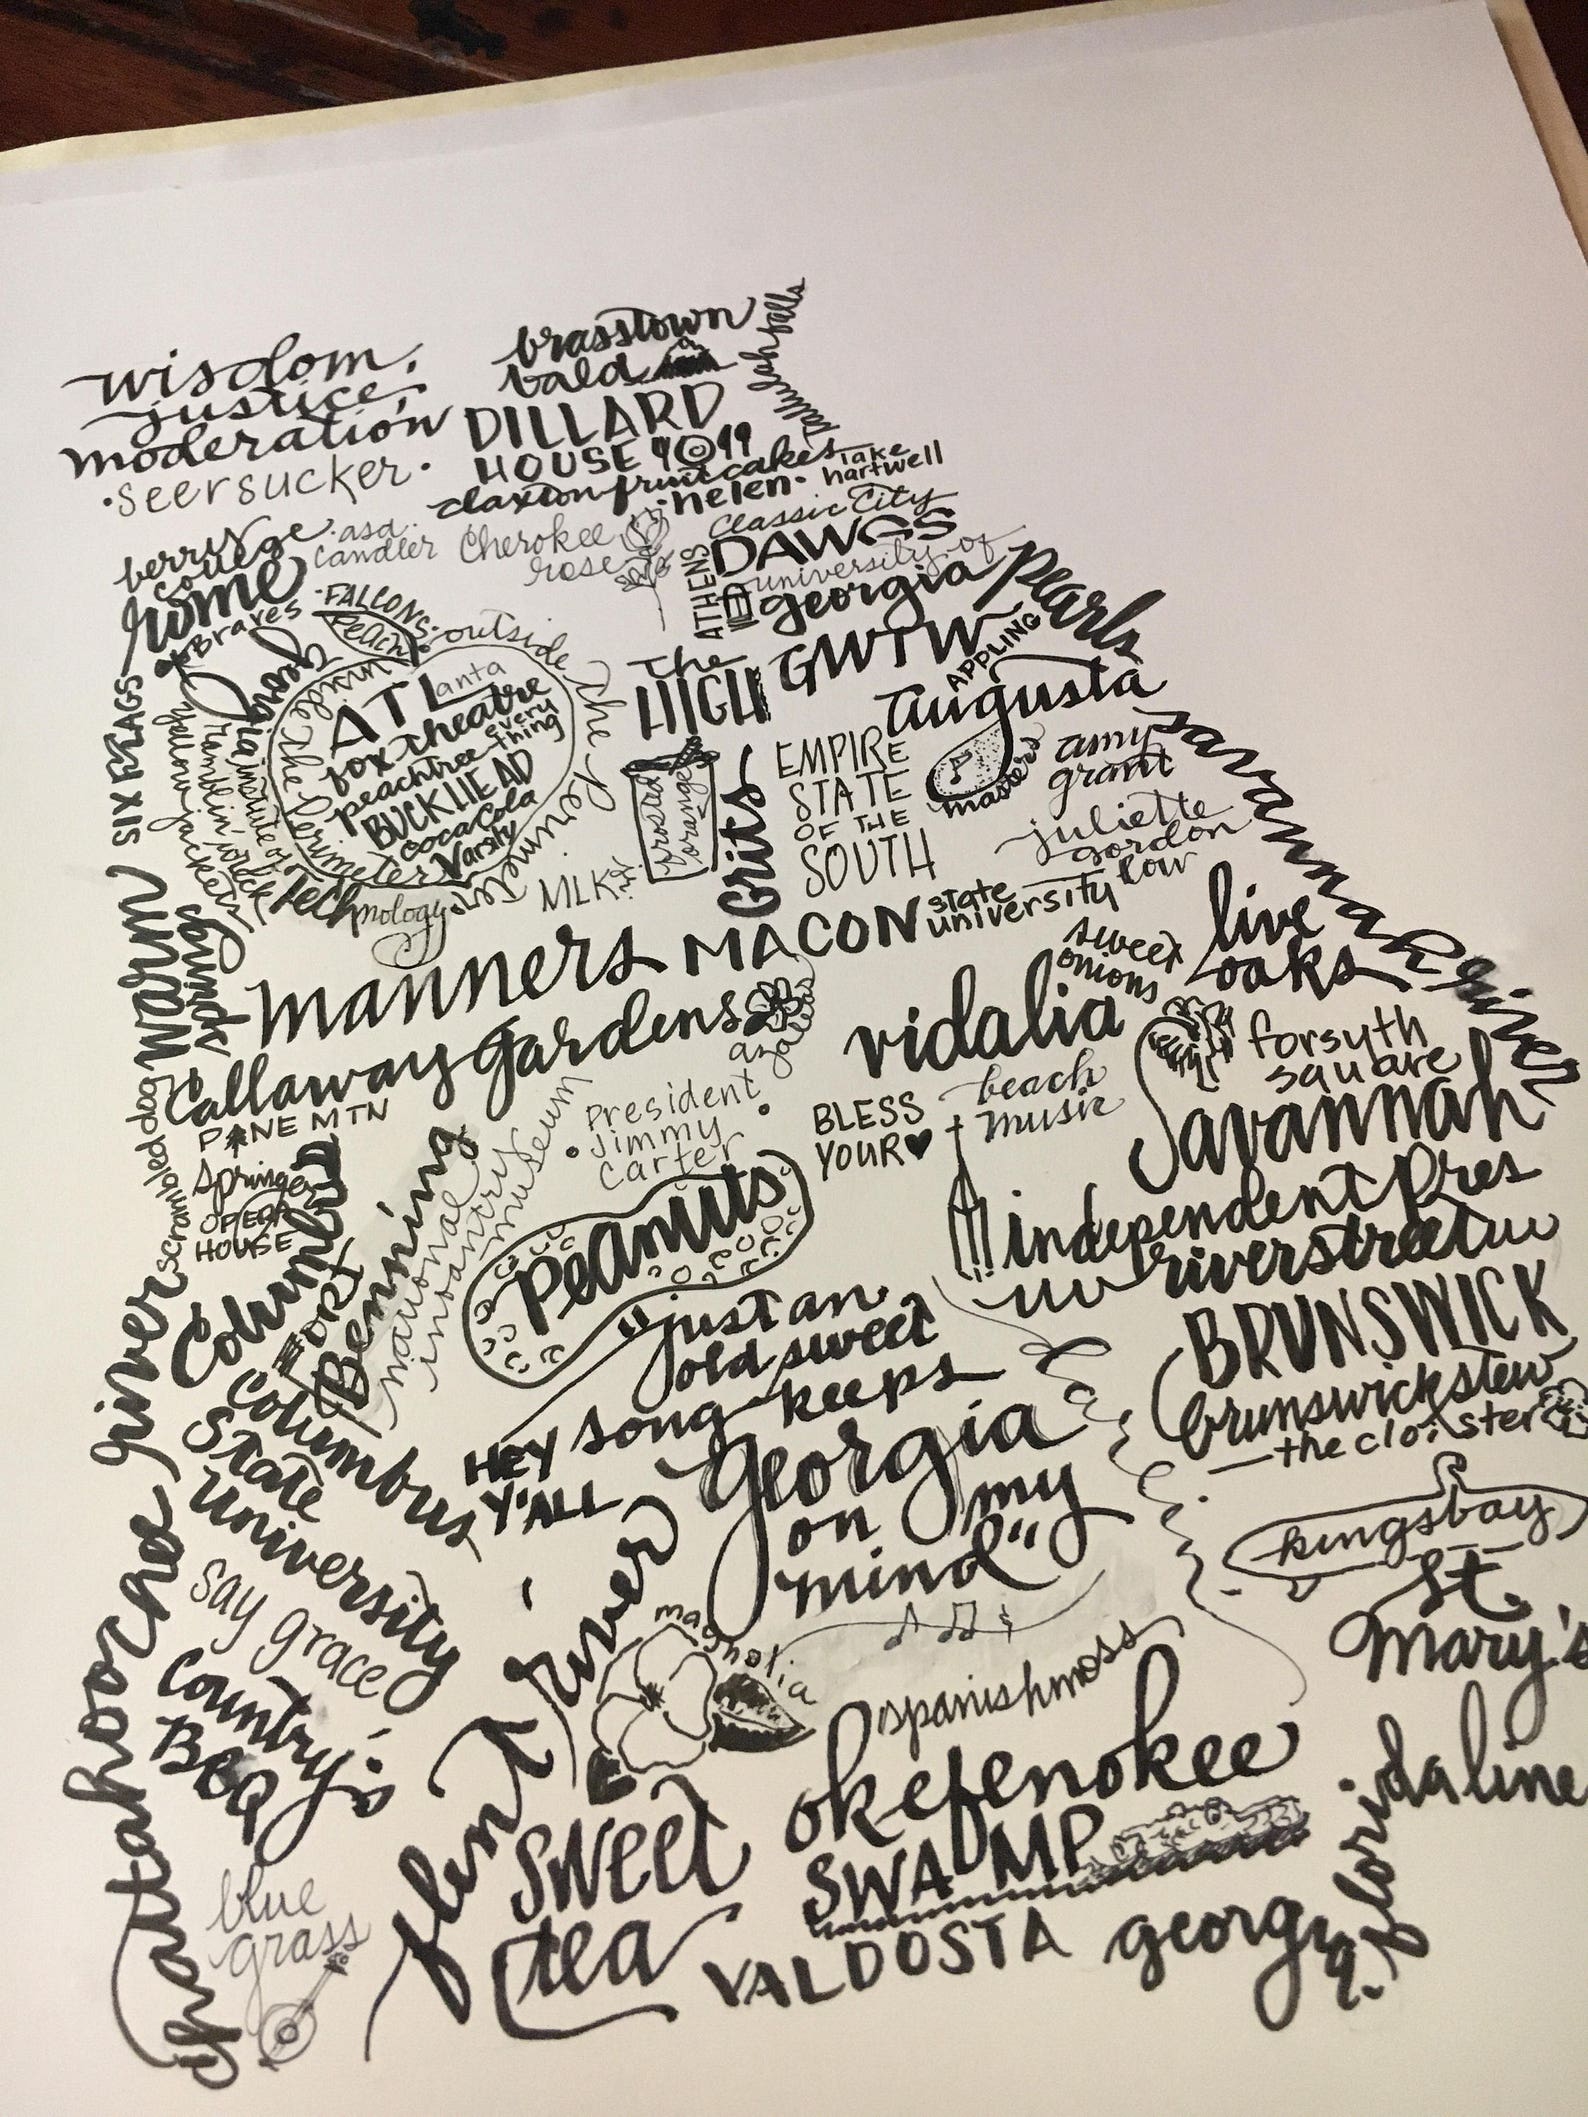 wisdom,
justice,
moderation
·seersucker·
brasstown
bald
tallulah falls
DILLARD
HOUSE
claxton fruitcakes
·helen·
lake
hartwell
berry
college
rome
asa
candler
Cherokee
rose
Classic City
ATHENS
DAWGS
university of
georgia
pearls
Braves
·FALCONS·
peach
outside The Perimeter
inside The Perimeter
ATLanta
fox theatre
peachtree-every
thing
BUCKHEAD
coca cola
Varsity
SIX FLAGS
yellow jackets
ramblin' wreck
Georgia institute of
Technology
MLK jr
The
HIGH
GWTW
APPLING
augusta
masters
frosted
orange
Grits
EMPIRE
STATE
OF THE
SOUTH
amy
grant
juliette
gordon
low
savannah river
warm
springs
manners
MACON
state
university
sweet
onions
vidalia
live
oaks
Callaway gardens
azaleas
PINE MTN
scrambled dog
Springer
OPERA
HOUSE
Columbus
FORT
Benning
national
infantry
museum
·President
Jimmy
Carter·
peanuts
BLESS
YOUR
beach
music
forsyth
square
Savannah
independent pres
riverstreet
BRUNSWICK
brunswick stew
—the cloister
Columbus
State
University
HEY
Y'ALL
"just an
old sweet
song-keeps
Georgia
on my
mind"
kingsbay
St.
Mary's
say grace
Country's
BBQ
chattahoochee river
flint river
magnolia
spanish moss
okefenokee
SWAMP
sweet
tea
blue
grass
VALDOSTA
georgia·florida line